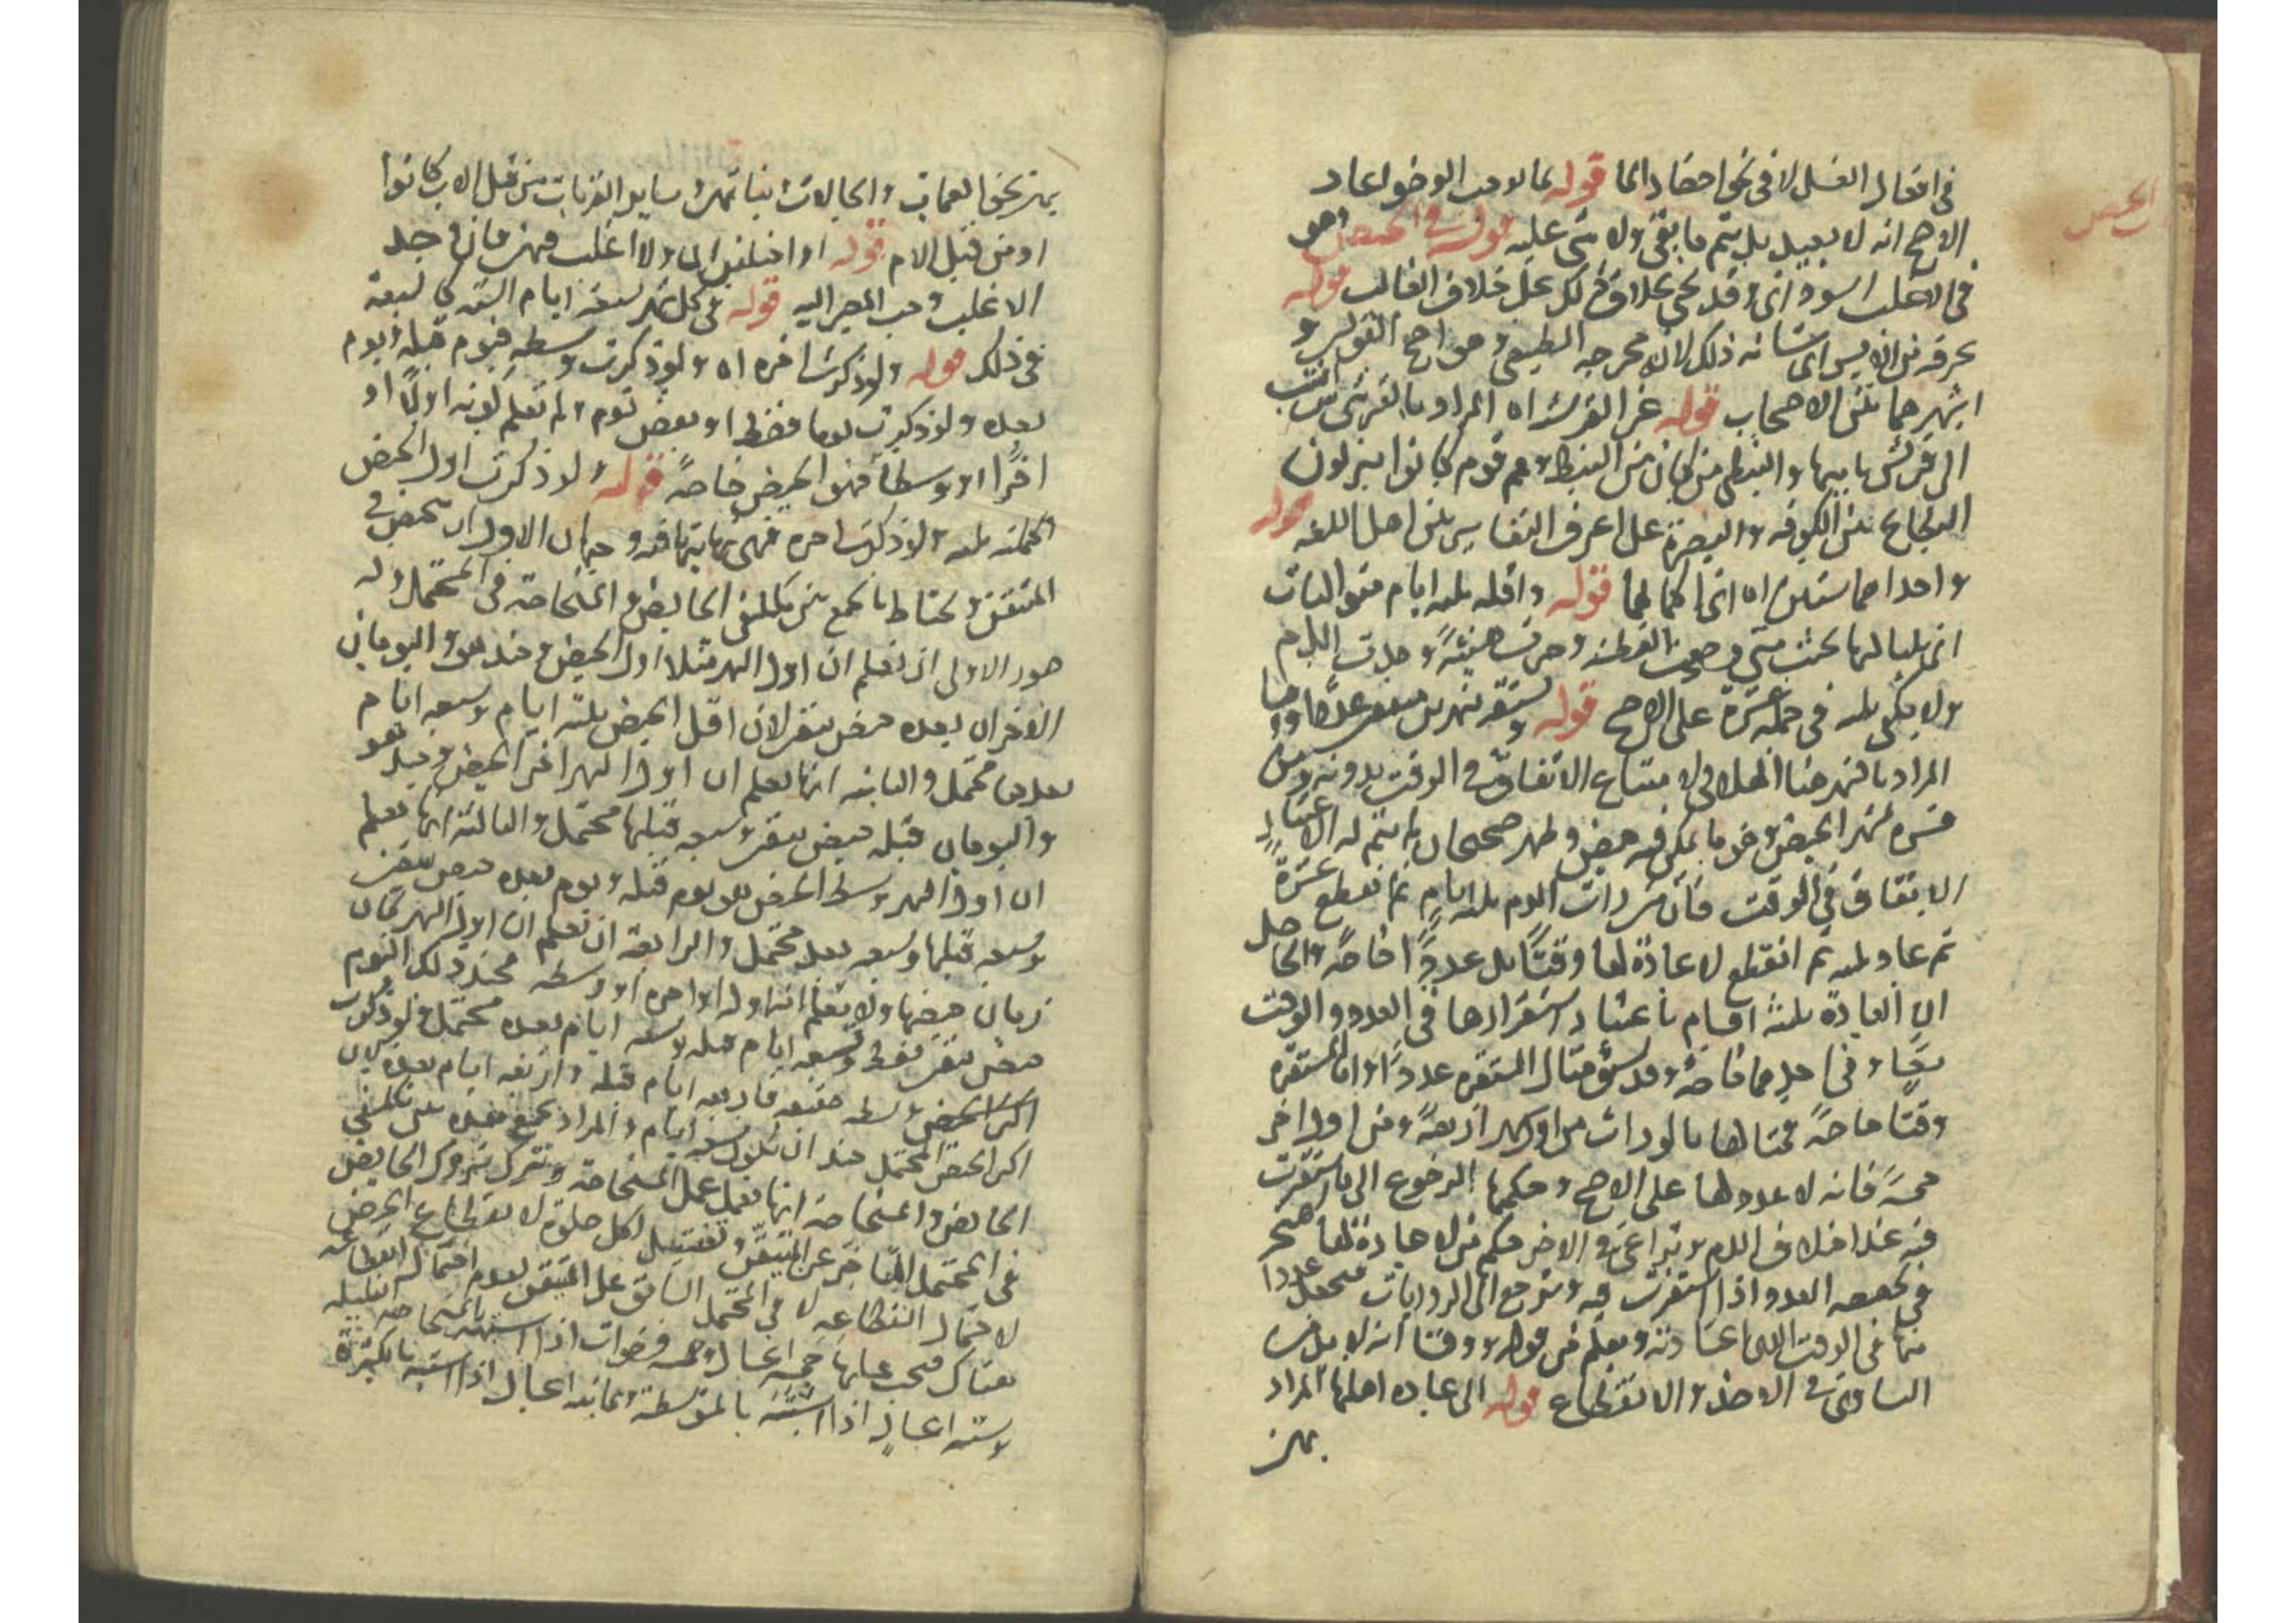 الحيض
في افعال الغسل لا في نحو احضار الما قوله بما يوجب الوضو اعاد
الاصح انه لا يعيد بل يتم ما بقى ولا شى عليه قوله في الحيض وهو
في الاغلب اسود اى وقد يجى بخلاف ذلك على خلاف الغالب قوله
بحرقه من الايسر اى شانه ذلك لان مخرجه الطبيعى وهو اصح القولين و
اشهرهما بين الاصحاب قوله غير القرشية اه المراد بالقرشى من انتسب
الى قريش بابيها والنبطى من كان من النبط وهم قوم كانوا ينزلون
البطايح بين الكوفه والبصرة على اعرف التفاسير بين اهل اللغه قوله
واحداهما ستين اه اتحاكمالها قوله واقله ثلثه ايام متواليات
اى بلياليها بحيث متى وضعت القطنه وصرت هنيئة وجدت الدم
ولا يكفى ثلثه في جملة عشرة على الاصح قوله وتستقر بشهرين متفقين عددا ووقتا
المراد بالشهر هنا الهلالى لامتناع الاتفاق في الوقت بدونه ومن
فسره بشهر الحيض وهو ما يمكن فيه حيض وطهر صحيحان لم يتم له الاعتبار
الاتفاق في الوقت فان من رات الدم ثلثه ايام ثم انقطع عشرة
ثم عاد ثلثه ثم انقطع لا عادة لها وقتا بل عددا خاصة والحاصل
ان العادة ثلثة اقسام باعتبار استقرارها في العدد والوقت
معا وفي احدهما خاصة وقد سبق مثال المستقره عددا واما المستقره
وقتا خاصة فمثالها ما لو رات من اول شهر اربعة ومن اول اخر
خمسة فانه لا عدد لها على الاصح وحكمها الرجوع الى ما استقرت
فيه عند اختلاف الدم وتراعى في الاخر حكم من لا عادة لها فتتحير
في تخصيصه العدد اذا استقرت فيه وترجع الى الروايات فتجعل عددا
منها في الوقت الذى اعتادته ويعلم من قوله ووقتا انه لا بد من
التساوى في الاخذ والانقطاع قوله الى عادة اهلها المراد
بهن
بهن نحو العمات والخالات وبناتهن وساير القربات من قبل الاب كانوا
او من قبل الام قوله او اختلفن اى ولا اغلب فيهن فان وجد
الاغلب وجب المصير اليه قوله في كل شهر سبعة ايام الستة كالسبعة
في ذلك قوله ولو ذكرت اخره اه ولو ذكرت وسطه فيوم قبله ويوم
بعده ولو ذكرت يوما فقط او بعض يوم ولم تعلم كونه اولا او
اخرا او وسطا فهو الحيض خاصة قوله ولو ذكرت اول الحيض
اكملته ثلثه ولو ذكرت اخره فهى نهايتها فيه وجهان الاول ان تحيض في
المتيقن وتحتاط بالجمع بين تكليفى الحايض والمستحاضة في المحتمل وله
صور الاولى ان تعلم ان اول الشهر مثلا اول الحيض فح هو واليومان
الاخران بعده حيض بيقين لان اقل الحيض ثلثه ايام وسبعه ايام
بعدها محتمل والثانيه انها تعلم ان اول الشهر اخر الحيض فح هو
واليومان قبله حيض بيقين وسبعه قبلها محتمل والثالثة انها تعلم
ان اول الشهر وسط الحيض فهو يوم قبله ويوم بعده حيض بيقين
وسبعه قبلها وسبعه بعد محتمل والرابعة ان تعلم ان اول الشهر كان
زمان حيضها ولا تعلم انه اوله او اخره او وسطه فح ذلك اليوم
حيض بيقين فقط وتسعه ايام قبله وتسعه ايام بعده محتمل ولو ذكرت
اكثر الحيض وسطه فاربعه ايام قبله واربعه ايام بعده
اكثر الحيض المحتمل ان تكون تسعه ايام والمراد بجمع هذه بين تكليفى
الحايض والمستحاضة انها تعمل عمل المستحاضة وتترك تروك الحايض
في المحتمل المتاخر عن المتيقن وتغتسل لكل صلوة لانقطاع الحيض
لاحتمال انقطاعه لا في المحتمل السابق على المتيقن لعدم احتمال انقطاعه
هناك فيجب عليها خمسة اغسال وخمسه وضوات اذا اشتبه بالمستحاضة القليله
وسته اغسال اذا اشتبه بالمتوسطة وثمانيه اغسال اذا اشتبه بالكثيرة